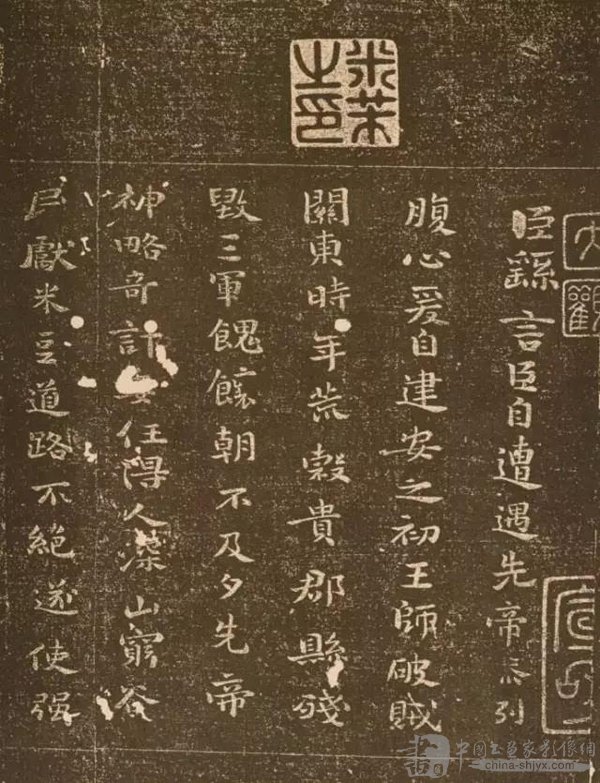 米芾之印
大觀
臣繇言臣自遭遇先帝忝列
腹心爰自建安之初王師破賊
關東時年荒榖貴郡縣殘
毀三軍餽饟朝不及夕先帝
神略奇計委任得人深山窮谷
民獻米豆道路不絕遂使强
中国书画家影像網
china-shjyx.com